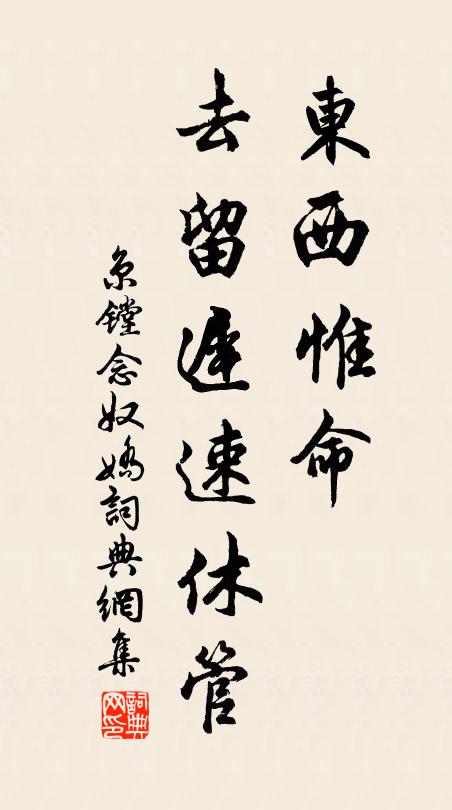 東西惟命
去留遲速休管
京鏜念奴嬌詞典網集
詞典網印